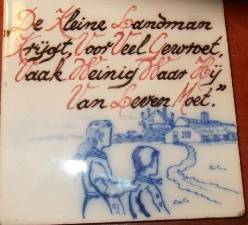 "De Kleine Landman
Krijgt, Voor Veel Gewroet,
Vaak Weinig Waar Hij
Van Leven Moet."